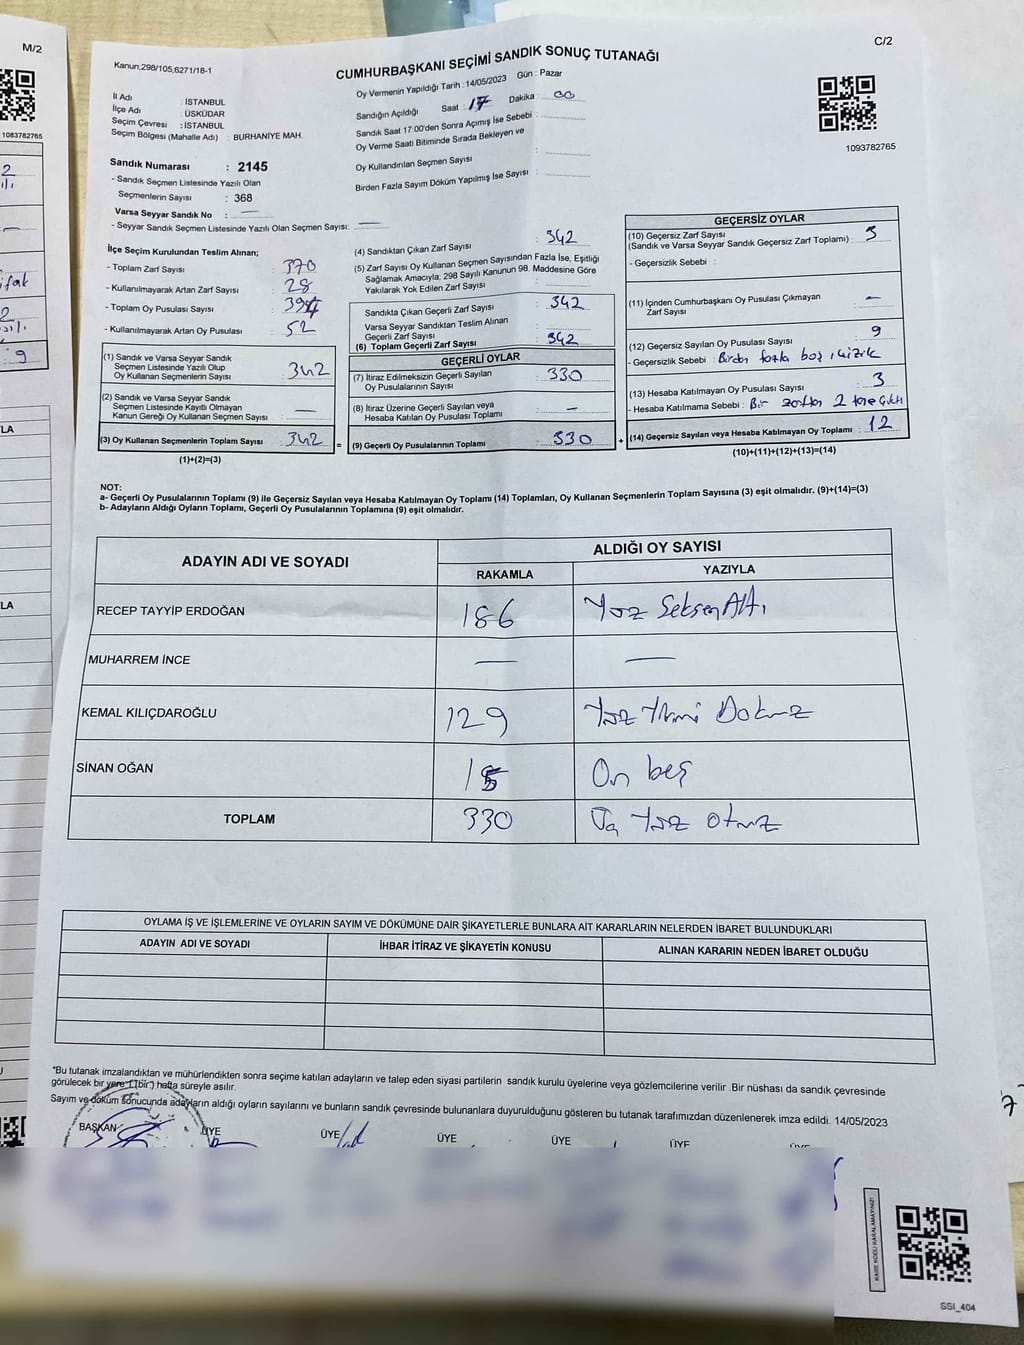 M/2
1083782765
C/2
Kanun;298/105,6271/18-1
CUMHURBAŞKANI SEÇİMİ SANDIK SONUÇ TUTANAĞI
Oy Vermenin Yapıldığı Tarih : 14/05/2023 Gün : Pazar
İl Adı : İSTANBUL
İlçe Adı : ÜSKÜDAR
Seçim Çevresi : İSTANBUL
Seçim Bölgesi (Mahalle Adı) : BURHANİYE MAH.
Sandık Numarası : 2145
- Sandık Seçmen Listesinde Yazılı Olan
Seçmenlerin Sayısı : 368
Varsa Seyyar Sandık No : —
- Seyyar Sandık Seçmen Listesinde Yazılı Olan Seçmen Sayısı: —
Sandığın Açıldığı Saat : 17 Dakika : 00
Sandık Saat 17:00'den Sonra Açımış İse Sebebi :
Oy Verme Saati Bitiminde Sırada Bekleyen ve
Oy Kullandırılan Seçmen Sayısı :
Birden Fazla Sayım Döküm Yapılmış İse Sayısı :
1093782765
İlçe Seçim Kurulundan Teslim Alınan;
- Toplam Zarf Sayısı : 370
- Kullanılmayarak Artan Zarf Sayısı : 28
- Toplam Oy Pusulası Sayısı : 394
- Kullanılmayarak Artan Oy Pusulası : 52
(1) Sandık ve Varsa Seyyar Sandık
Seçmen Listesinde Yazılı Olup
Oy Kullanan Seçmenlerin Sayısı : 342
(2) Sandık ve Varsa Seyyar Sandık
Seçmen Listesinde Kayıtlı Olmayan
Kanun Gereği Oy Kullanan Seçmen Sayısı : —
(3) Oy Kullanan Seçmenlerin Toplam Sayısı : 342 =
(1)+(2)=(3)
(4) Sandıktan Çıkan Zarf Sayısı : 342
(5) Zarf Sayısı Oy Kullanan Seçmen Sayısından Fazla İse, Eşitliği
Sağlamak Amacıyla; 298 Sayılı Kanunun 98. Maddesine Göre
Yakılarak Yok Edilen Zarf Sayısı :
Sandıkta Çıkan Geçerli Zarf Sayısı : 342
Varsa Seyyar Sandıktan Teslim Alınan
Geçerli Zarf Sayısı :
(6) Toplam Geçerli Zarf Sayısı : 342
GEÇERLİ OYLAR
(7) İtiraz Edilmeksizin Geçerli Sayılan
Oy Pusulalarının Sayısı : 330
(8) İtiraz Üzerine Geçerli Sayılan veya
Hesaba Katılan Oy Pusulası Toplamı : —
(9) Geçerli Oy Pusulalarının Toplamı : 330 +
GEÇERSİZ OYLAR
(10) Geçersiz Zarf Sayısı
(Sandık ve Varsa Seyyar Sandık Geçersiz Zarf Toplamı) :
- Geçersizlik Sebebi :
(11) İçinden Cumhurbaşkanı Oy Pusulası Çıkmayan
Zarf Sayısı : —
(12) Geçersiz Sayılan Oy Pusulası Sayısı : 9
- Geçersizlik Sebebi : Birden fazla
(13) Hesaba Katılmayan Oy Pusulası Sayısı : 3
- Hesaba Katılmama Sebebi : Bir zarftan 2 tane Çıktı
(14) Geçersiz Sayılan veya Hesaba Katılmayan Oy Toplamı : 12
(10)+(11)+(12)+(13)=(14)
NOT:
a- Geçerli Oy Pusulalarının Toplamı (9) ile Geçersiz Sayılan veya Hesaba Katılmayan Oy Toplamı (14) Toplamları, Oy Kullanan Seçmenlerin Toplam Sayısına (3) eşit olmalıdır. (9)+(14)=(3)
b- Adayların Aldığı Oyların Toplamı, Geçerli Oy Pusulalarının Toplamına (9) eşit olmalıdır.
ADAYIN ADI VE SOYADI ALDIĞI OY SAYISI
RAKAMLA YAZIYLA
RECEP TAYYİP ERDOĞAN 186 Yüz Seksen Altı
MUHARREM İNCE — —
KEMAL KILIÇDAROĞLU 129 Yüz Yirmi Dokuz
SİNAN OĞAN 15 On beş
TOPLAM 330 Üç Yüz otuz
OYLAMA İŞ VE İŞLEMLERİNE VE OYLARIN SAYIM VE DÖKÜMÜNE DAİR ŞİKAYETLERLE BUNLARA AİT KARARLARIN NELERDEN İBARET BULUNDUKLARI
ADAYIN ADI VE SOYADI İHBAR İTİRAZ VE ŞİKAYETİN KONUSU ALINAN KARARIN NEDEN İBARET OLDUĞU
"Bu tutanak imzalandıktan ve mühürlendikten sonra seçime katılan adayların ve talep eden siyasi partilerin sandık kurulu üyelerine veya gözlemcilerine verilir .Bir nüshası da sandık çevresinde
görülecek bir yere 1 (bir) hafta süreyle asılır.
Sayım ve döküm sonucunda adayların aldığı oyların sayılarını ve bunların sandık çevresinde bulunanlara duyurulduğunu gösteren bu tutanak tarafımızdan düzenlenerek imza edildi. 14/05/2023
BAŞKAN ÜYE ÜYE ÜYE ÜYE ÜYE
KARE KODU KARALAMAYINIZ!
SSI_404